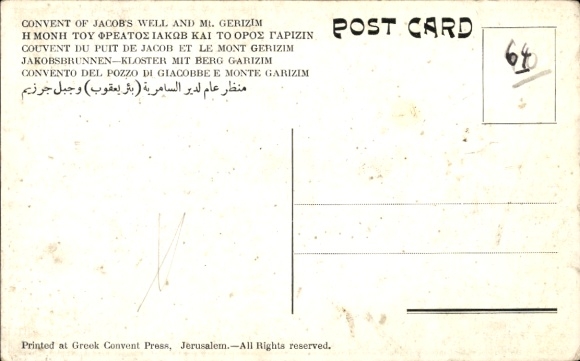 CONVENT OF JACOB'S WELL AND Mt. GERIZIM
Η ΜΟΝΗ ΤΟΥ ΦΡΕΑΤΟΣ ΙΑΚΩΒ ΚΑΙ ΤΟ ΟΡΟΣ ΓΑΡΙΖΙΝ
COUVENT DU PUIT DE JACOB ET LE MONT GERIZIM
JAKOBSBRUNNEN—KLOSTER MIT BERG GARIZIM
CONVENTO DEL POZZO DI GIACOBBE E MONTE GARIZIM
منظر عام لدير السامرية (بئر يعقوب) وجبل جرزيم
POST CARD
Printed at Greek Convent Press, Jerusalem.—All Rights reserved.